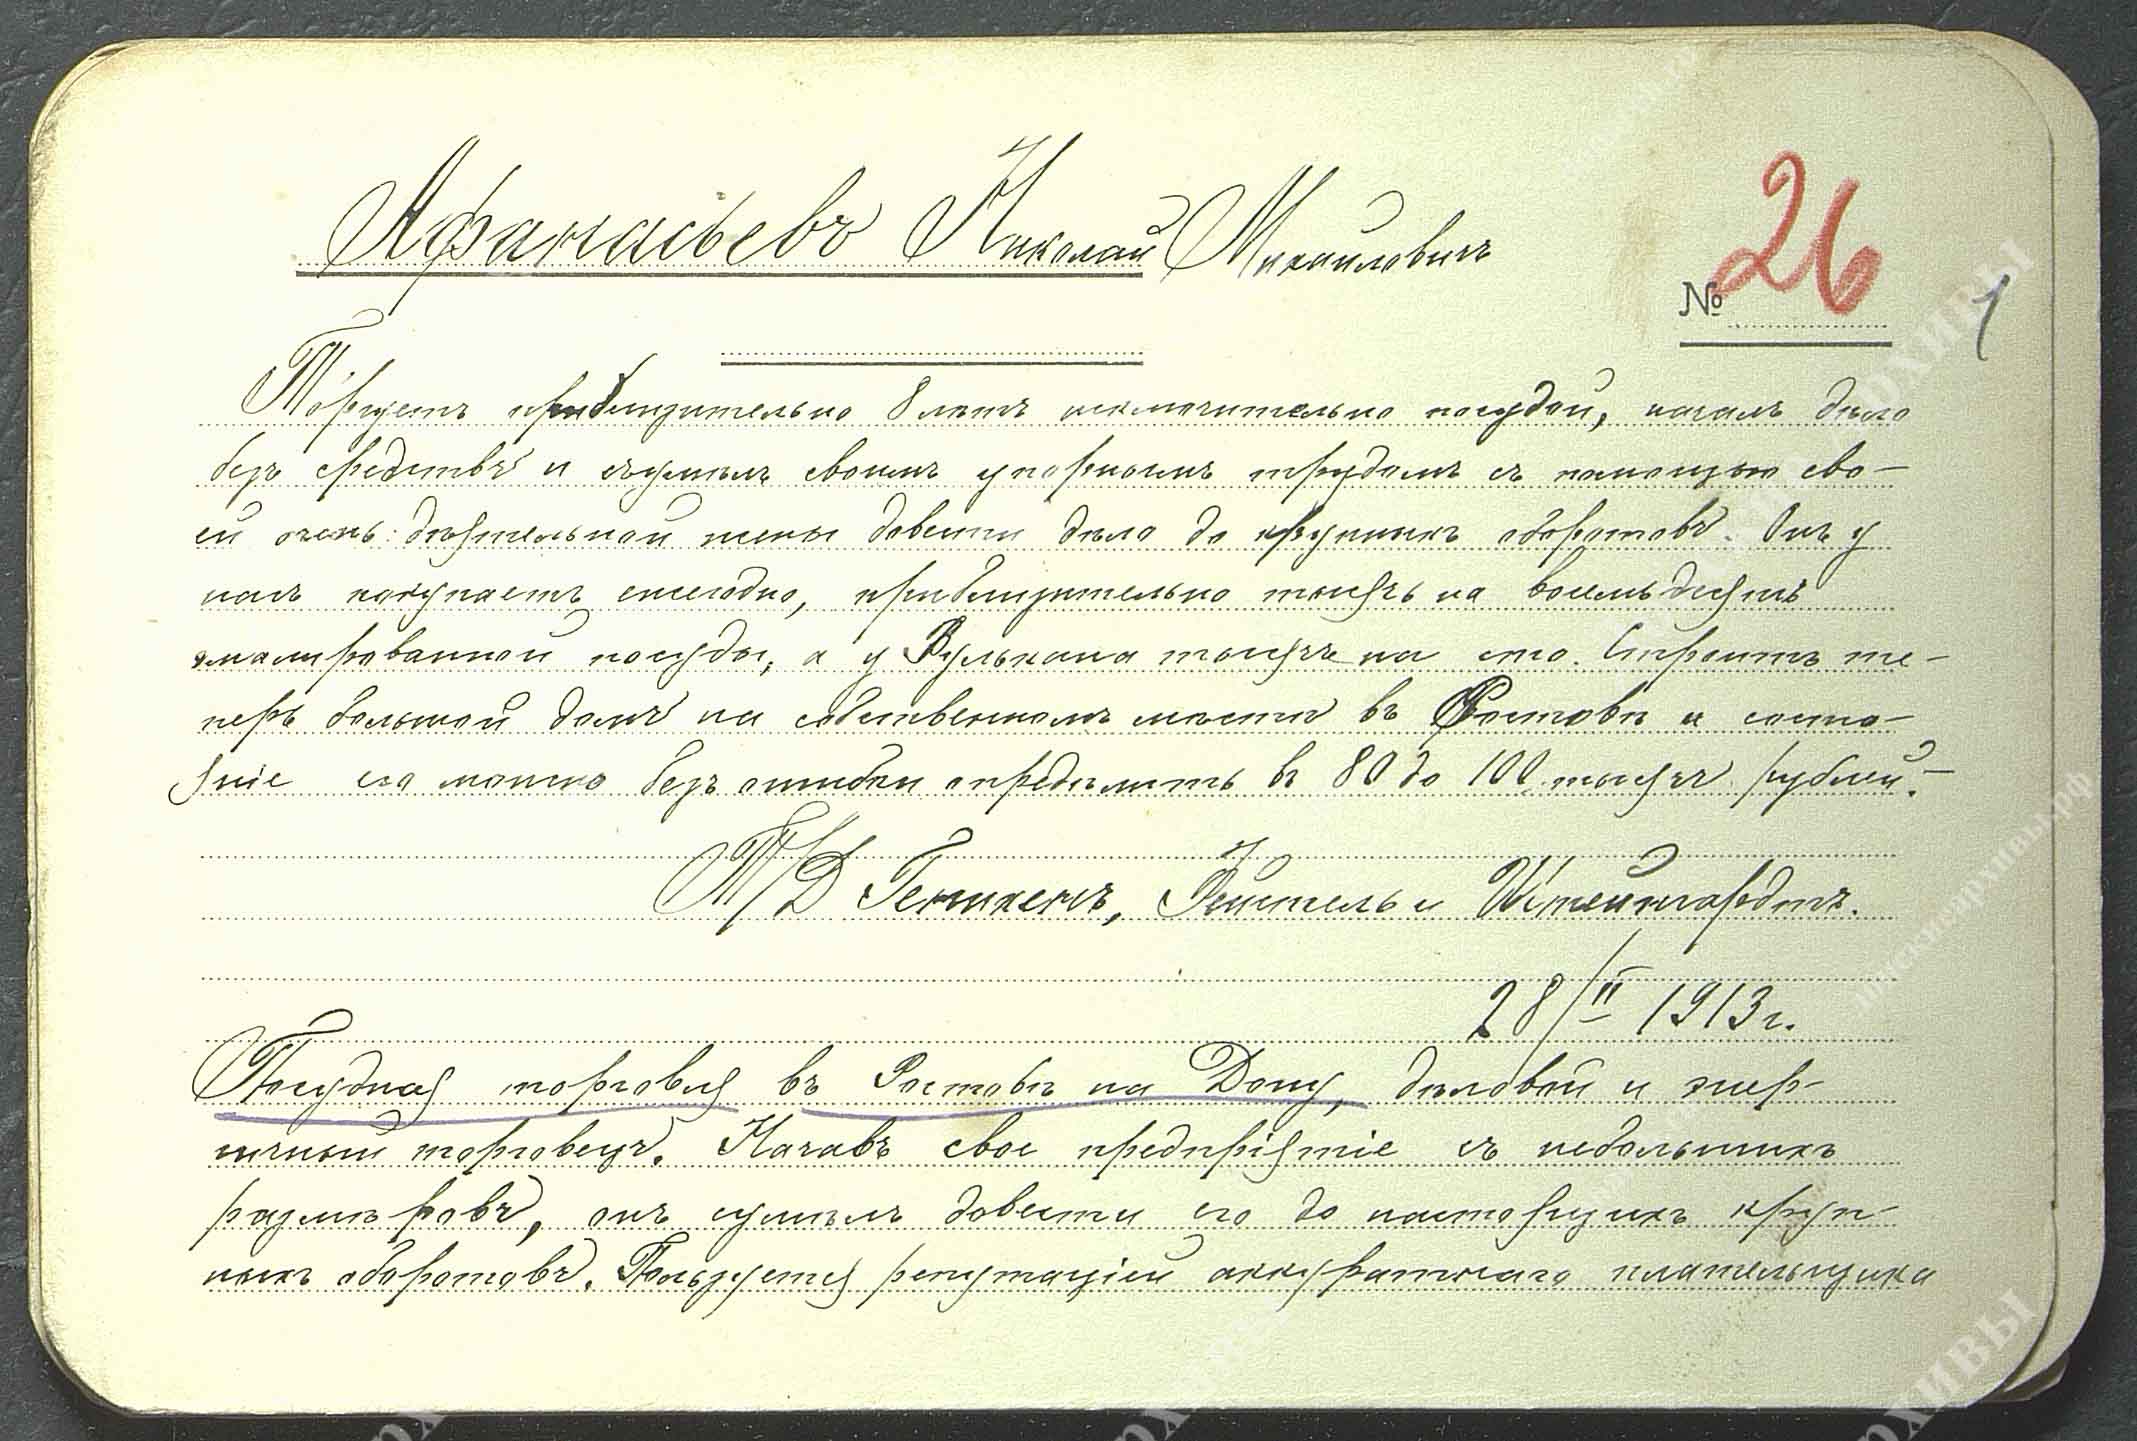 Афанасьевъ Николай Михайловичъ
№ 26
1
Торгуетъ приблизительно 8 лѣтъ исключительно посудой, началъ дѣло
безъ средствъ и съумѣлъ своимъ упорнымъ трудомъ съ помощью сво-
ей очень дѣятельной жены довести дѣло до крупныхъ оборотовъ. Онъ у
насъ покупаетъ ежегодно, приблизительно тысячъ на восемьдесятъ
эмалированной посуды, а у Вулькана тысячъ на сто. Строитъ те-
перь большой домъ на собственномъ мѣстѣ въ Ростовѣ и состо-
яніе его можно безъ ошибки опредѣлить въ 80 до 100 тысячъ рублей.-
Т/Д Генихенъ, Рейтель и Штейнгардтъ.
28/II 1913 г.
Посудная торговля въ Ростовѣ на Дону, дѣловой и энер-
гичный торговецъ. Начавъ свое предпріятіе съ небольшихъ
размѣровъ, онъ сумѣлъ довести его до настоящихъ круп-
ныхъ оборотовъ. Пользуется репутаціей аккуратнаго плательщика
архивы
москвскархивы.рф
архивы